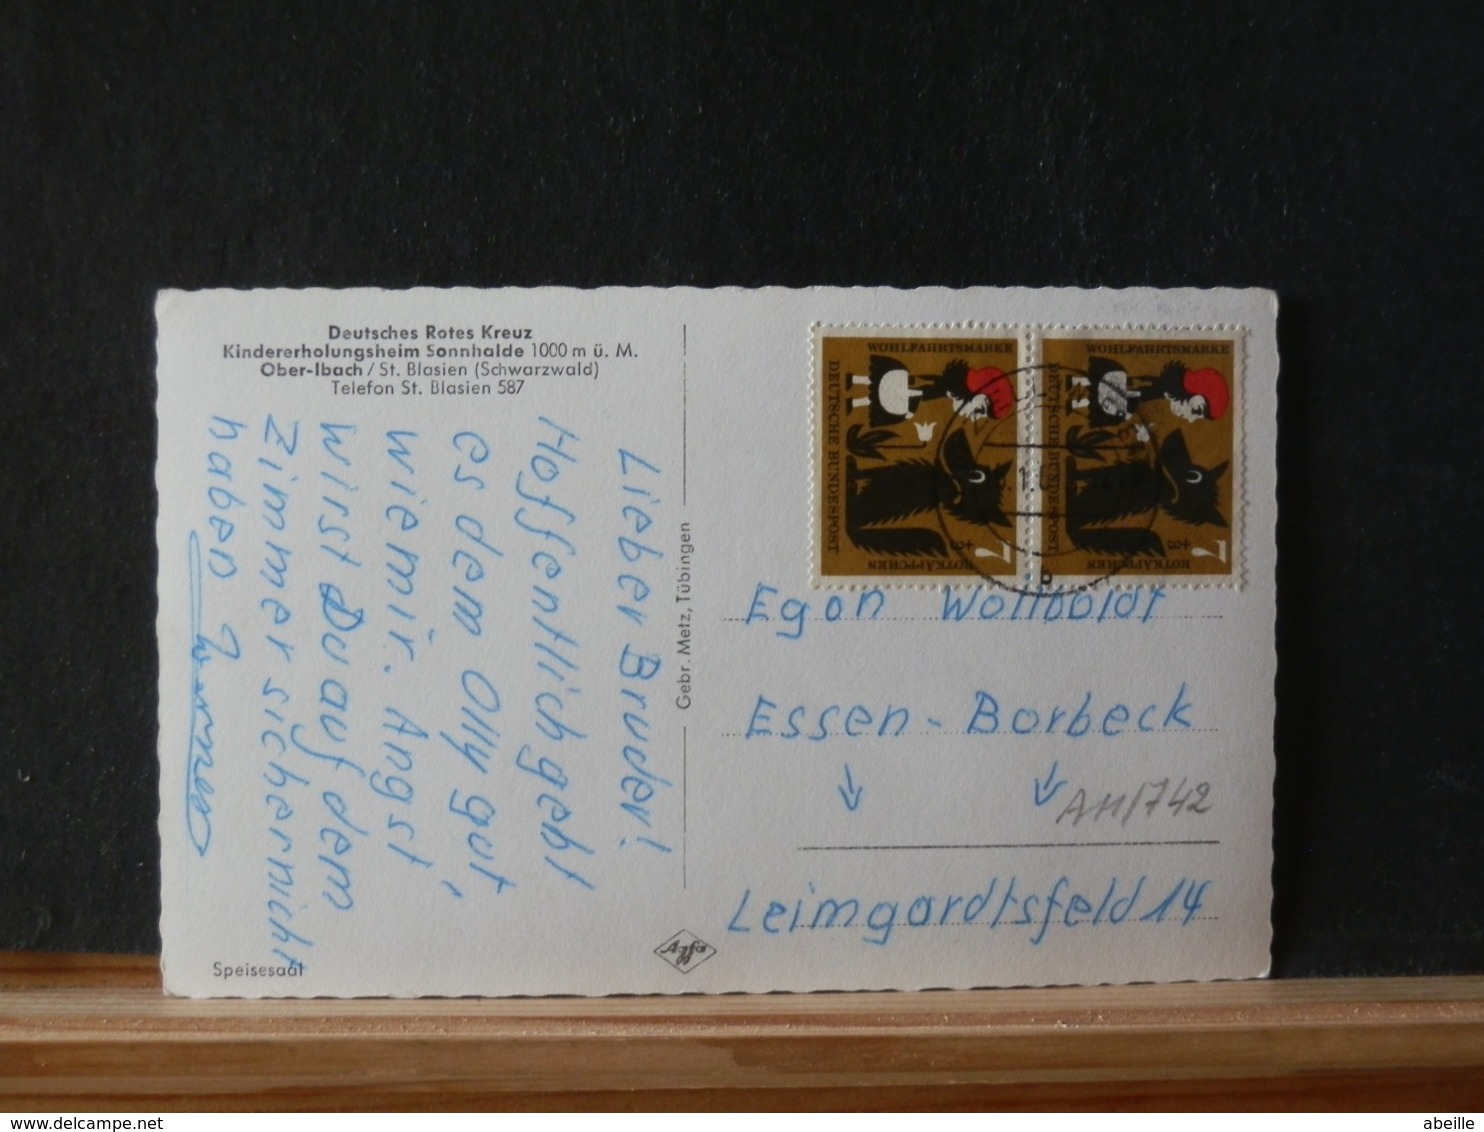 Deutsches Rotes Kreuz
Kindererholungsheim Sonnhalde 1000 m ü. M.
Ober-Ibach / St. Blasien (Schwarzwald)
Telefon St. Blasien 587
Lieber Bruder!
Hoffentlich geht
es dem Olly gut,
wie mir. Angst
wirst Du auf dem
Zimmer sicher nicht
haben
Speisesaal
Gebr. Metz, Tübingen
Agfa
WOHLFAHRTSMARKE
DEUTSCHE BUNDESPOST
ROTKÄPPCHEN
7 +3
WOHLFAHRTSMARKE
DEUTSCHE BUNDESPOST
ROTKÄPPCHEN
7 +3
Egon
Essen-Borbeck
A11/742
Leimgardtsfeld 14
abeille